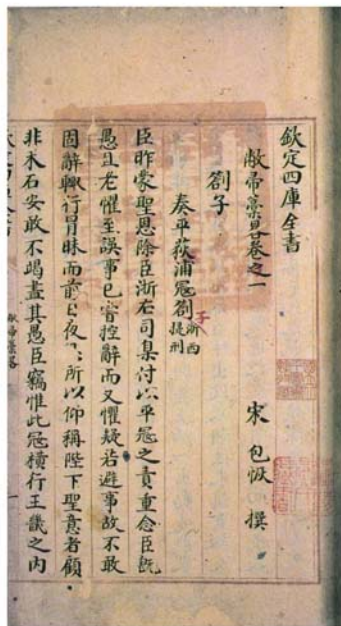 欽定四庫全書
敝帚藁畧卷之一
宋 包恢 撰
劄子
奏平荻浦冦劄子浙西提刑
臣昨蒙聖恩除臣浙右司臬付以平冦之責重念臣既
愚且老懼至誤事已嘗控辭而又懼疑若避事故不敢
固辭輙行冐昧而前日夜 所以仰稱陛下聖意者顧
非木石安敢不竭盡其愚臣竊惟此冦橫行王畿之内
敝帚藁畧
一